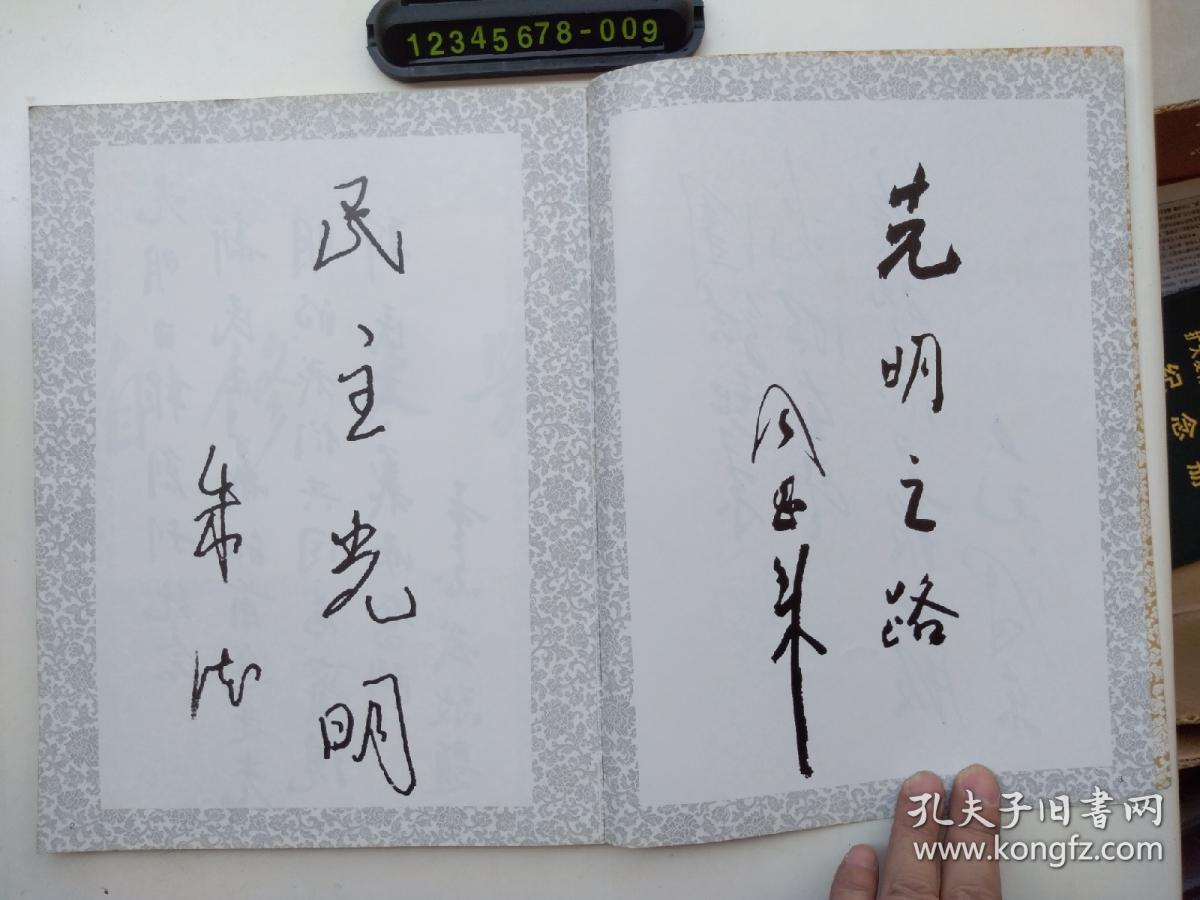 12345678-009
民主光明
朱德
光明之路
周恩来
2
3
纪念册
孔夫子旧书网
www.kongfz.com